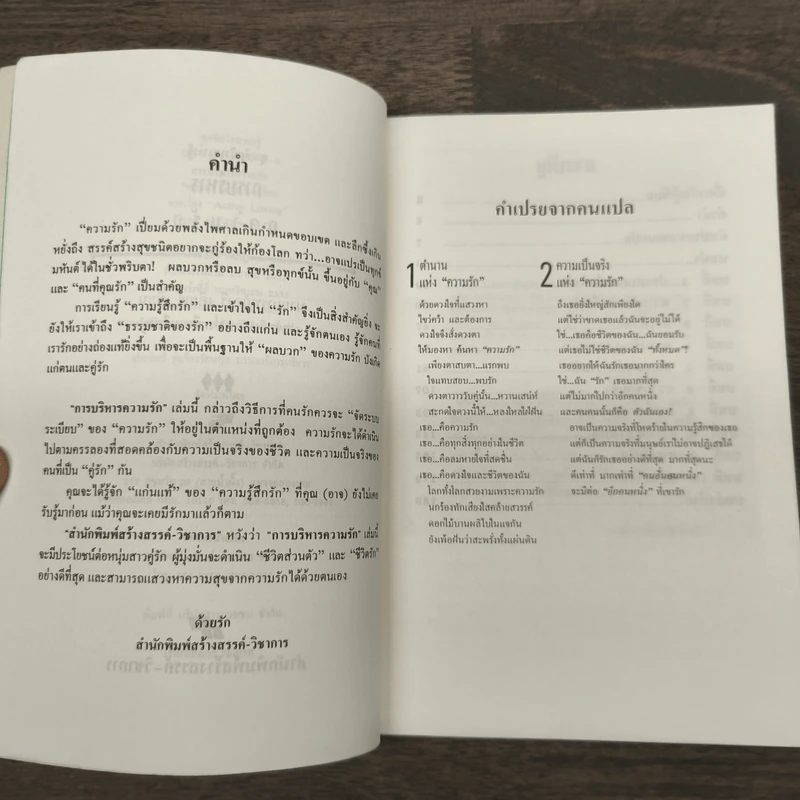 คำนำ
“ความรัก” เปี่ยมด้วยพลังไพศาลเกินกำหนดขอบเขต และลึกซึ้งเกิน
หยั่งถึง สรรค์สร้างสุขชนิดอยากจะกู่ร้องให้ก้องโลก ทว่า...อาจแปรเป็นทุกข์
มหันต์ได้ในชั่วพริบตา! ผลบวกหรือลบ สุขหรือทุกข์นั้น ขึ้นอยู่กับ “คุณ”
และ “คนที่คุณรัก” เป็นสำคัญ
การเรียนรู้ “ความรู้สึกรัก” และเข้าใจใน “รัก” จึงเป็นสิ่งสำคัญยิ่ง จะ
ยังให้เราเข้าถึง “ธรรมชาติของรัก” อย่างถึงแก่น และรู้จักตนเอง รู้จักคนที่
เรารักอย่างถ่องแท้ยิ่งขึ้น เพื่อจะเป็นพื้นฐานให้ “ผลบวก” ของความรัก บังเกิด
แก่ตนและคู่รัก
“การบริหารความรัก” เล่มนี้ กล่าวถึงวิธีการที่คนรักควรจะ “จัดระบบ
ระเบียบ” ของ “ความรัก” ให้อยู่ในตำแหน่งที่ถูกต้อง ความรักจะได้ดำเนิน
ไปตามครรลองที่สอดคล้องกับความเป็นจริงของชีวิต และความเป็นจริงของ
คนที่เป็น “คู่รัก” กัน
คุณจะได้รู้จัก “แก่นแท้” ของ “ความรู้สึกรัก” ที่คุณ (อาจ) ยังไม่เคย
รับรู้มาก่อน แม้ว่าคุณจะเคยมีรักมาแล้วก็ตาม
“สำนักพิมพ์สร้างสรรค์-วิชาการ” หวังว่า “การบริหารความรัก” เล่มนี้
จะมีประโยชน์ต่อหนุ่มสาวคู่รัก ผู้มุ่งมั่นจะดำเนิน “ชีวิตส่วนตัว” และ “ชีวิตรัก”
อย่างดีที่สุด และสามารถแสวงหาความสุขจากความรักได้ด้วยตนเอง
ด้วยรัก
สำนักพิมพ์สร้างสรรค์-วิชาการ
คำเปรยจากคนแปล
1 ตำนาน
แห่ง “ความรัก”
ด้วยดวงใจที่แสวงหา
ไขว่คว้า และต้องการ
ดวงใจจึงสั่งดวงตา
ให้มองหา ค้นหา “ความรัก”
เพียงตาสบตา...แรกพบ
ใจแทบสยบ...พบรัก
ดวงตาวาวรับคู่นั้น...หวานเสน่ห์
สะกดใจดวงนี้ให้...หลงใหลใฝ่ฝัน
เธอ...คือความรัก
เธอ...คือทุกสิ่งทุกอย่างในชีวิต
เธอ...คือลมหายใจที่สดชื่น
เธอ...คือดวงใจและชีวิตของฉัน
โลกทั้งโลกสวยงามเพราะความรัก
นกร้องทักเสียงใสคล้ายสวรรค์
ดอกไม้บานผลิใบในแจกัน
ยังเพ้อฝันว่าสะพรั่งทั้งแผ่นดิน
2 ความเป็นจริง
แห่ง “ความรัก”
ถึงเธอยิ่งใหญ่สักเพียงใด
แต่ใช่ว่าขาดเธอแล้วฉันจะอยู่ไม่ได้
ใช่...เธอคือชีวิตของฉัน...ฉันยอมรับ
แต่เธอไม่ใช่ชีวิตของฉัน “ทั้งหมด”!
เธออยากให้ฉันรักเธอมากกว่าใคร
ใช่...ฉัน “รัก” เธอมากที่สุด
แต่ไม่มากไปกว่าอีกคนหนึ่ง
และคนคนนั้นก็คือ ตัวฉันเอง!
อาจเป็นความจริงที่โหดร้ายในความรู้สึกของเธอ
แต่ก็เป็นความจริงที่มนุษย์เราไม่อาจปฏิเสธได้
แต่ฉันก็รักเธออย่างดีที่สุด มากที่สุดนะ
ดีเท่าที่ มากเท่าที่ “คนอื่นคนหนึ่ง”
จะมีต่อ “อีกคนหนึ่ง” ที่เขารัก